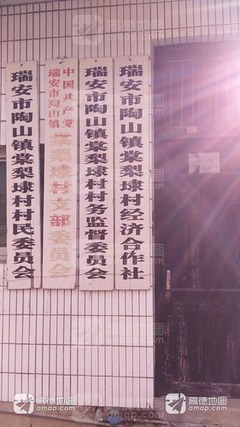 瑞安市陶山镇棠梨埭村村民委员会
中国共产党
瑞安市陶山镇
棠梨埭村支部委员会
瑞安市陶山镇棠梨埭村村务监督委员会
瑞安市陶山镇棠梨埭村经济合作社
高德地图
amap.com
高德地图
amap.com